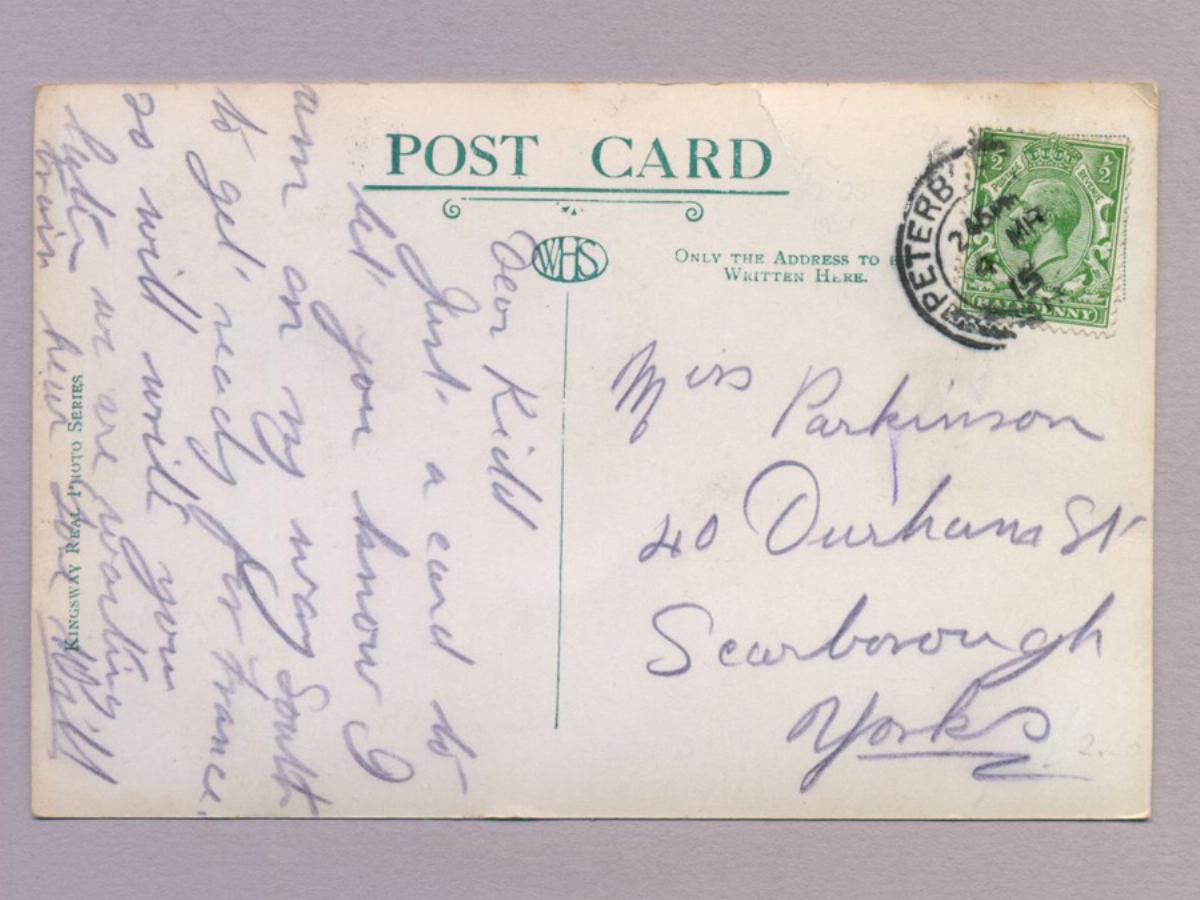 POST CARD
WHS
ONLY THE ADDRESS TO
WRITTEN HERE.
PETERB
2 45 PM
MR
15
POSTAGE REVENUE
½ ½
HALFPENNY
Miss Parkinson
40 Durham St
Scarborough
Yorks
Dear Kidd
Just a card to
let you know I
am on my way South
to get ready for France.
so will write you
later we are waiting
train here
Will
KINGSWAY REAL PHOTO SERIES